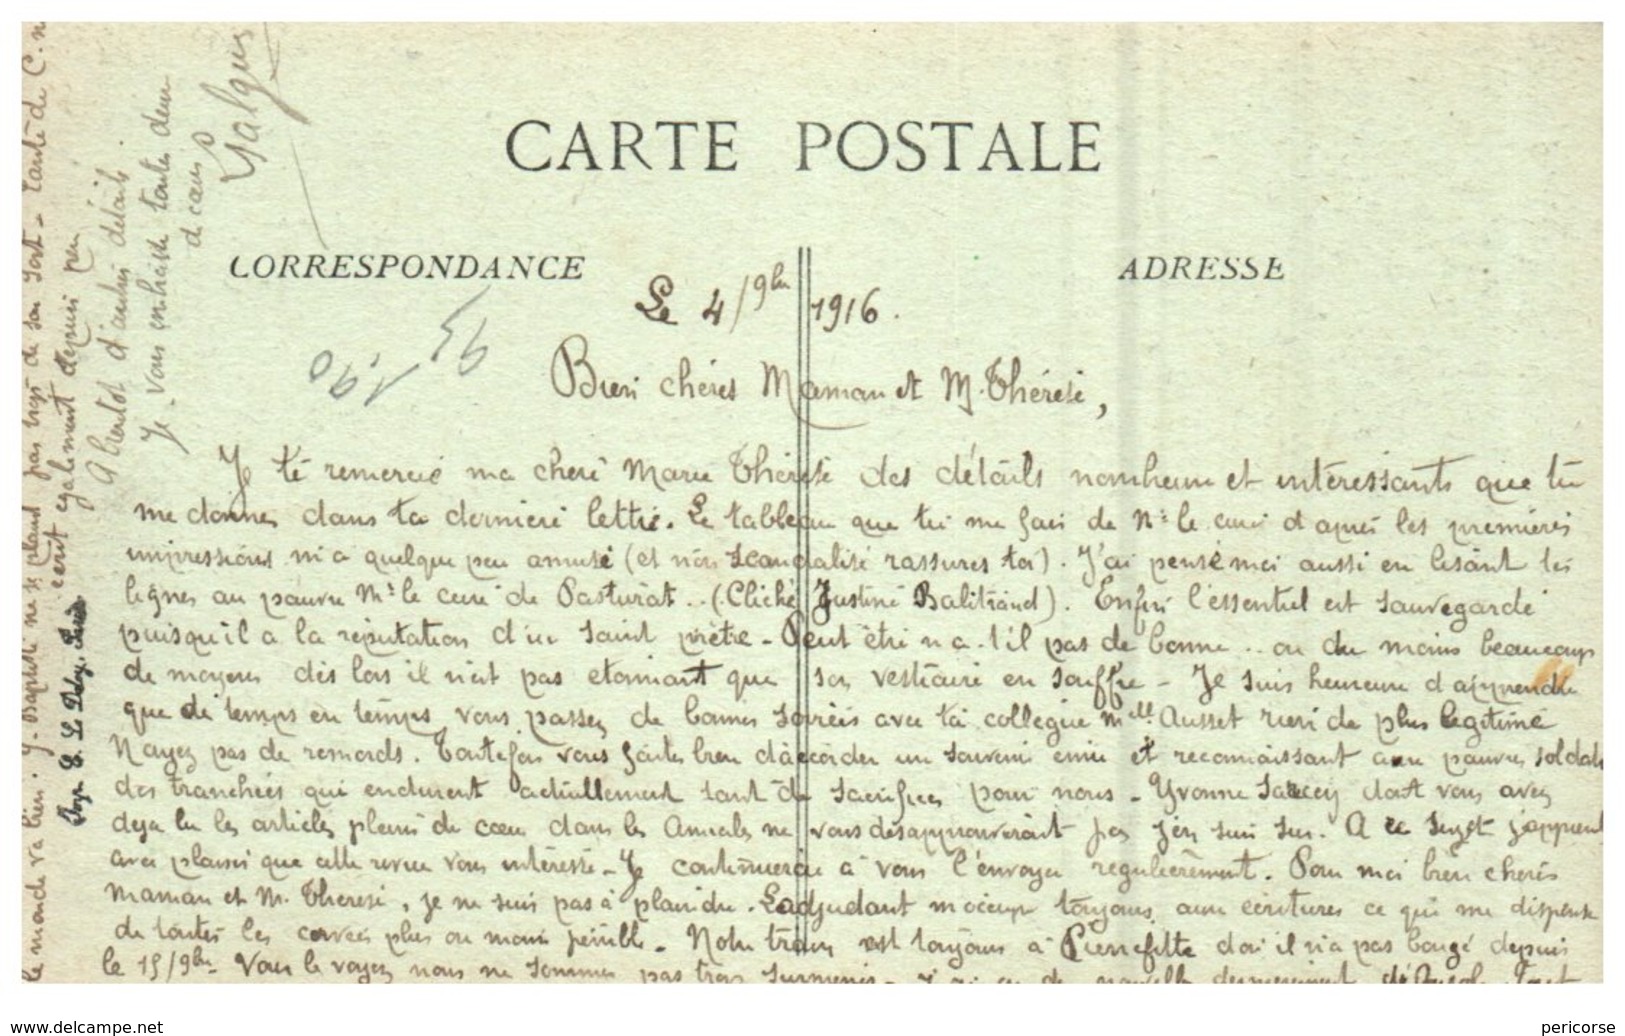 CARTE POSTALE
CORRESPONDANCE
ADRESSE
Le 4/9bre 1916.
Bien chères Maman et M. Thérèse,
Je te remercie ma chère Marie Thérèse des détails nombreux et intéressants que tu
me donnes dans ta dernière lettre. Le tableau que tu me fais de Mr le curé d'après les premières
impressions m'a quelque peu amusé (et non scandalisé rassures toi). J'ai pensé moi aussi en lisant tes
lignes au pauvre Mr le curé de Pasturat.. (Cliché Justine Balitrand). Enfin l'essentiel est sauvegardé
puisqu'il a la réputation d'un saint prêtre - Peut être n'a-t'il pas de bonne .. ou du moins beaucoup
de moyens dès lors il n'est pas étonnant que son vestiaire en souffre - Je suis heureux d'apprendre
que de temps en temps vous passez de bonnes soirées avec ta collègue Melle Ausset rien de plus légitime
N'ayez pas de remords. Toutefois vous faites bien d'accorder un souvenir ému et reconnaissant aux pauvres soldats
des tranchées qui endurent actuellement tant de sacrifices pour nous - Yvonne Sarcey dont vous avez
déjà lu les articles pleins de cœur dans les Annales ne vous désapprouverait pas j'en suis sûr. A ce sujet j'apprends
avec plaisir que cette revue vous intéresse - Je continuerai à vous l'envoyer régulièrement. Pour moi bien chères
maman et M. Thérèse, je ne suis pas à plaindre. L'adjudant m'occupe toujours aux écritures ce qui me dispense
de toutes les corvées plus ou moins pénibles - Notre train est toujours à Pierrefitte d'où il n'a pas bougé depuis
le 15/9bre Vous le voyez nous ne sommes pas trop surmenés - J'ai eu de nouvelles dernièrement
le monde va bien. J. Baptiste ne se plaint pas trop de son sort - Tante de C. m
écrit également depuis peu
A bientôt d'autres détails.
Je vous embrasse toutes deux
de cœur
Imp. E. Le Deley, Paris
pericorse
www.delcampe.net